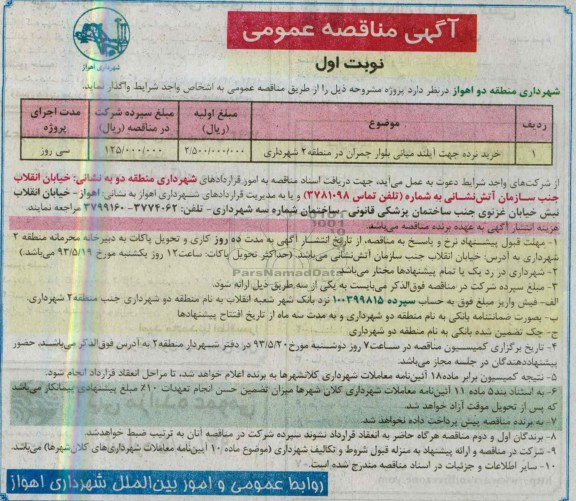 آگهی مناقصه عمومی
شهرداری اهواز
نوبت اول
شهرداری منطقه دو اهواز درنظر دارد پروژه مشروحه ذیل را از طریق مناقصه عمومی به اشخاص واجد شرایط واگذار نماید.
ردیف موضوع مبلغ اولیه (ریال) مبلغ سپرده شرکت در مناقصه (ریال) مدت اجرای پروژه
۱ خرید نرده جهت آیلند میانی بلوار چمران در منطقه ۲ شهرداری ۲/۵۰۰/۰۰۰/۰۰۰ ۱۲۵/۰۰۰/۰۰۰ سی روز
از شرکت‌های واجد شرایط دعوت به عمل می‌آید، جهت دریافت اسناد مناقصه به امور قراردادهای شهرداری منطقه دو به نشانی: خیابان انقلاب
جنب سازمان آتش‌نشانی به شماره (تلفن تماس ۳۷۸۱۰۹۸) و یا به مدیریت قراردادهای شهرداری اهواز به نشانی: اهواز - خیابان انقلاب
نبش خیابان غزنوی جنب ساختمان پزشکی قانونی - ساختمان شماره سه شهرداری - تلفن: ۳۷۷۴۰۶۲- ۳۷۹۹۱۶۰ مراجعه نمایند.
هزینه انتشار آگهی به عهده برنده مناقصه می‌باشد.
۱- مهلت قبول پیشنهاد نرخ و پاسخ به مناقصه، از تاریخ انتشار آگهی به مدت ده روز کاری و تحویل پاکات به دبیرخانه محرمانه منطقه ۲
شهرداری به آدرس: خیابان انقلاب جنب سازمان آتش‌نشانی می‌باشد. (حداکثر تحویل پاکات: ساعت ۱۲ روز یکشنبه مورخ ۹۳/۵/۱۹ می‌باشد.)
۲- شهرداری در رد یک یا تمام پیشنهادها مختار می‌باشد.
ParsNamadData
۳- مبلغ سپرده شرکت در مناقصه فوق‌الذکر می‌بایست به یکی از سه طریق ذیل ارائه شود.
الف- فیش واریز مبلغ فوق به حساب سپرده ۱۰۰۳۹۹۸۱۵ نزد بانک شهر شعبه انقلاب به نام منطقه دو شهرداری جنب منطقه ۲ شهرداری.
ب- بصورت ضمانتنامه بانکی به نام منطقه دو شهرداری و به مدت سه ماه از تاریخ افتتاح پیشنهادها
ج- چک تضمین شده بانکی به نام منطقه دو شهرداری.
۴- تاریخ برگزاری کمیسیون مناقصه در ساعت ۷ روز دوشنبه مورخ ۹۳/۵/۲۰ در دفتر شهردار منطقه ۲ به آدرس فوق‌الذکر می‌باشند. حضور
پیشنهاددهندگان در جلسه مجاز می‌باشد.
۵- نتیجه کمیسیون برابر ماده ۱۸ آئین‌نامه معاملات شهرداری کلانشهرها به برنده اعلام خواهد شد، تا مراحل انعقاد قرارداد انجام شود.
۶- به استناد بند ۵ ماده ۱۱ آئین‌نامه معاملات شهرداری کلان شهرها میزان تضمین حسن انجام تعهدات ۱۰٪ مبلغ پیشنهادی پیمانکار می‌باشد
که پس از تحویل موقت آزاد خواهد شد.
۷- به برنده مناقصه پیش پرداخت داده نخواهد شد.
۸- برندگان اول و دوم مناقصه هرگاه حاضر به انعقاد قرارداد نشوند سپرده شرکت در مناقصه آنان به ترتیب ضبط خواهدشد.
۹- شرکت در مناقصه و ارائه پیشنهاد به منزله قبول شروط و تکالیف شهرداری (موضوع ماده ۱۰ آئین‌نامه معاملات شهرداری‌های کلان‌شهرها) می‌باشد.
۱۰- سایر اطلاعات و جزئیات در اسناد مناقصه مندرج شده است.
روابط عمومی و امور بین‌الملل شهرداری اهواز